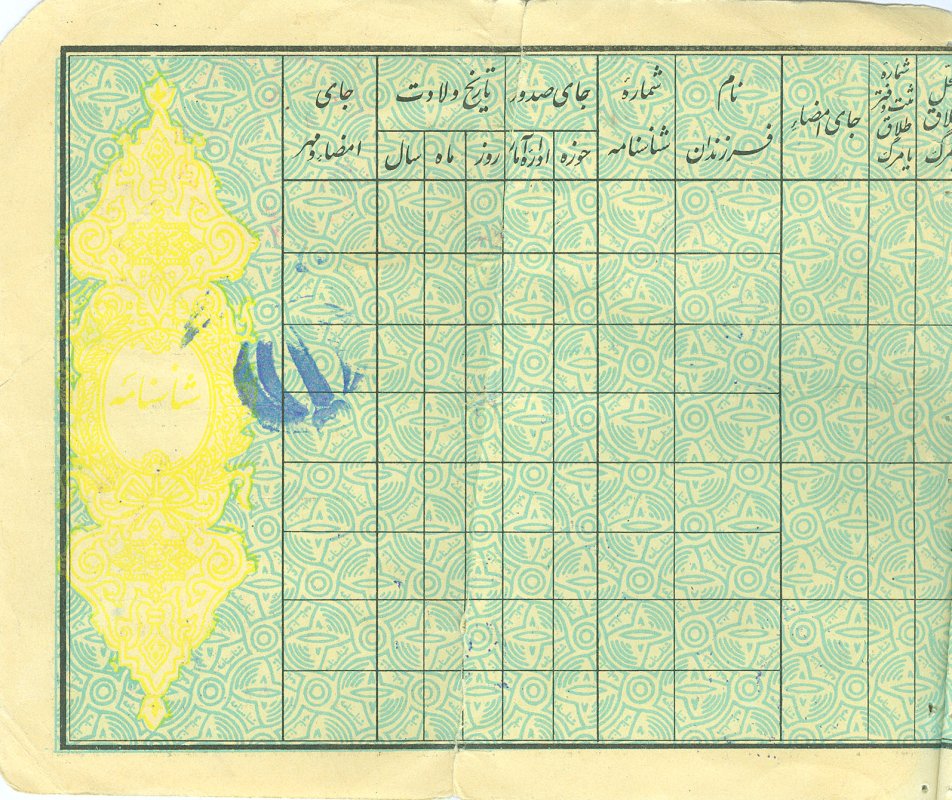 شمارهٔ
ثبت و دفتر
طلاق
یا مرگ
جای امضاء
نام
فرزندان
شمارهٔ
شناسنامه
جای صدور
حوزه
اداره آمار
تاریخ ولادت
روز
ماه
سال
جای
امضاء و مهر
شناسنامه